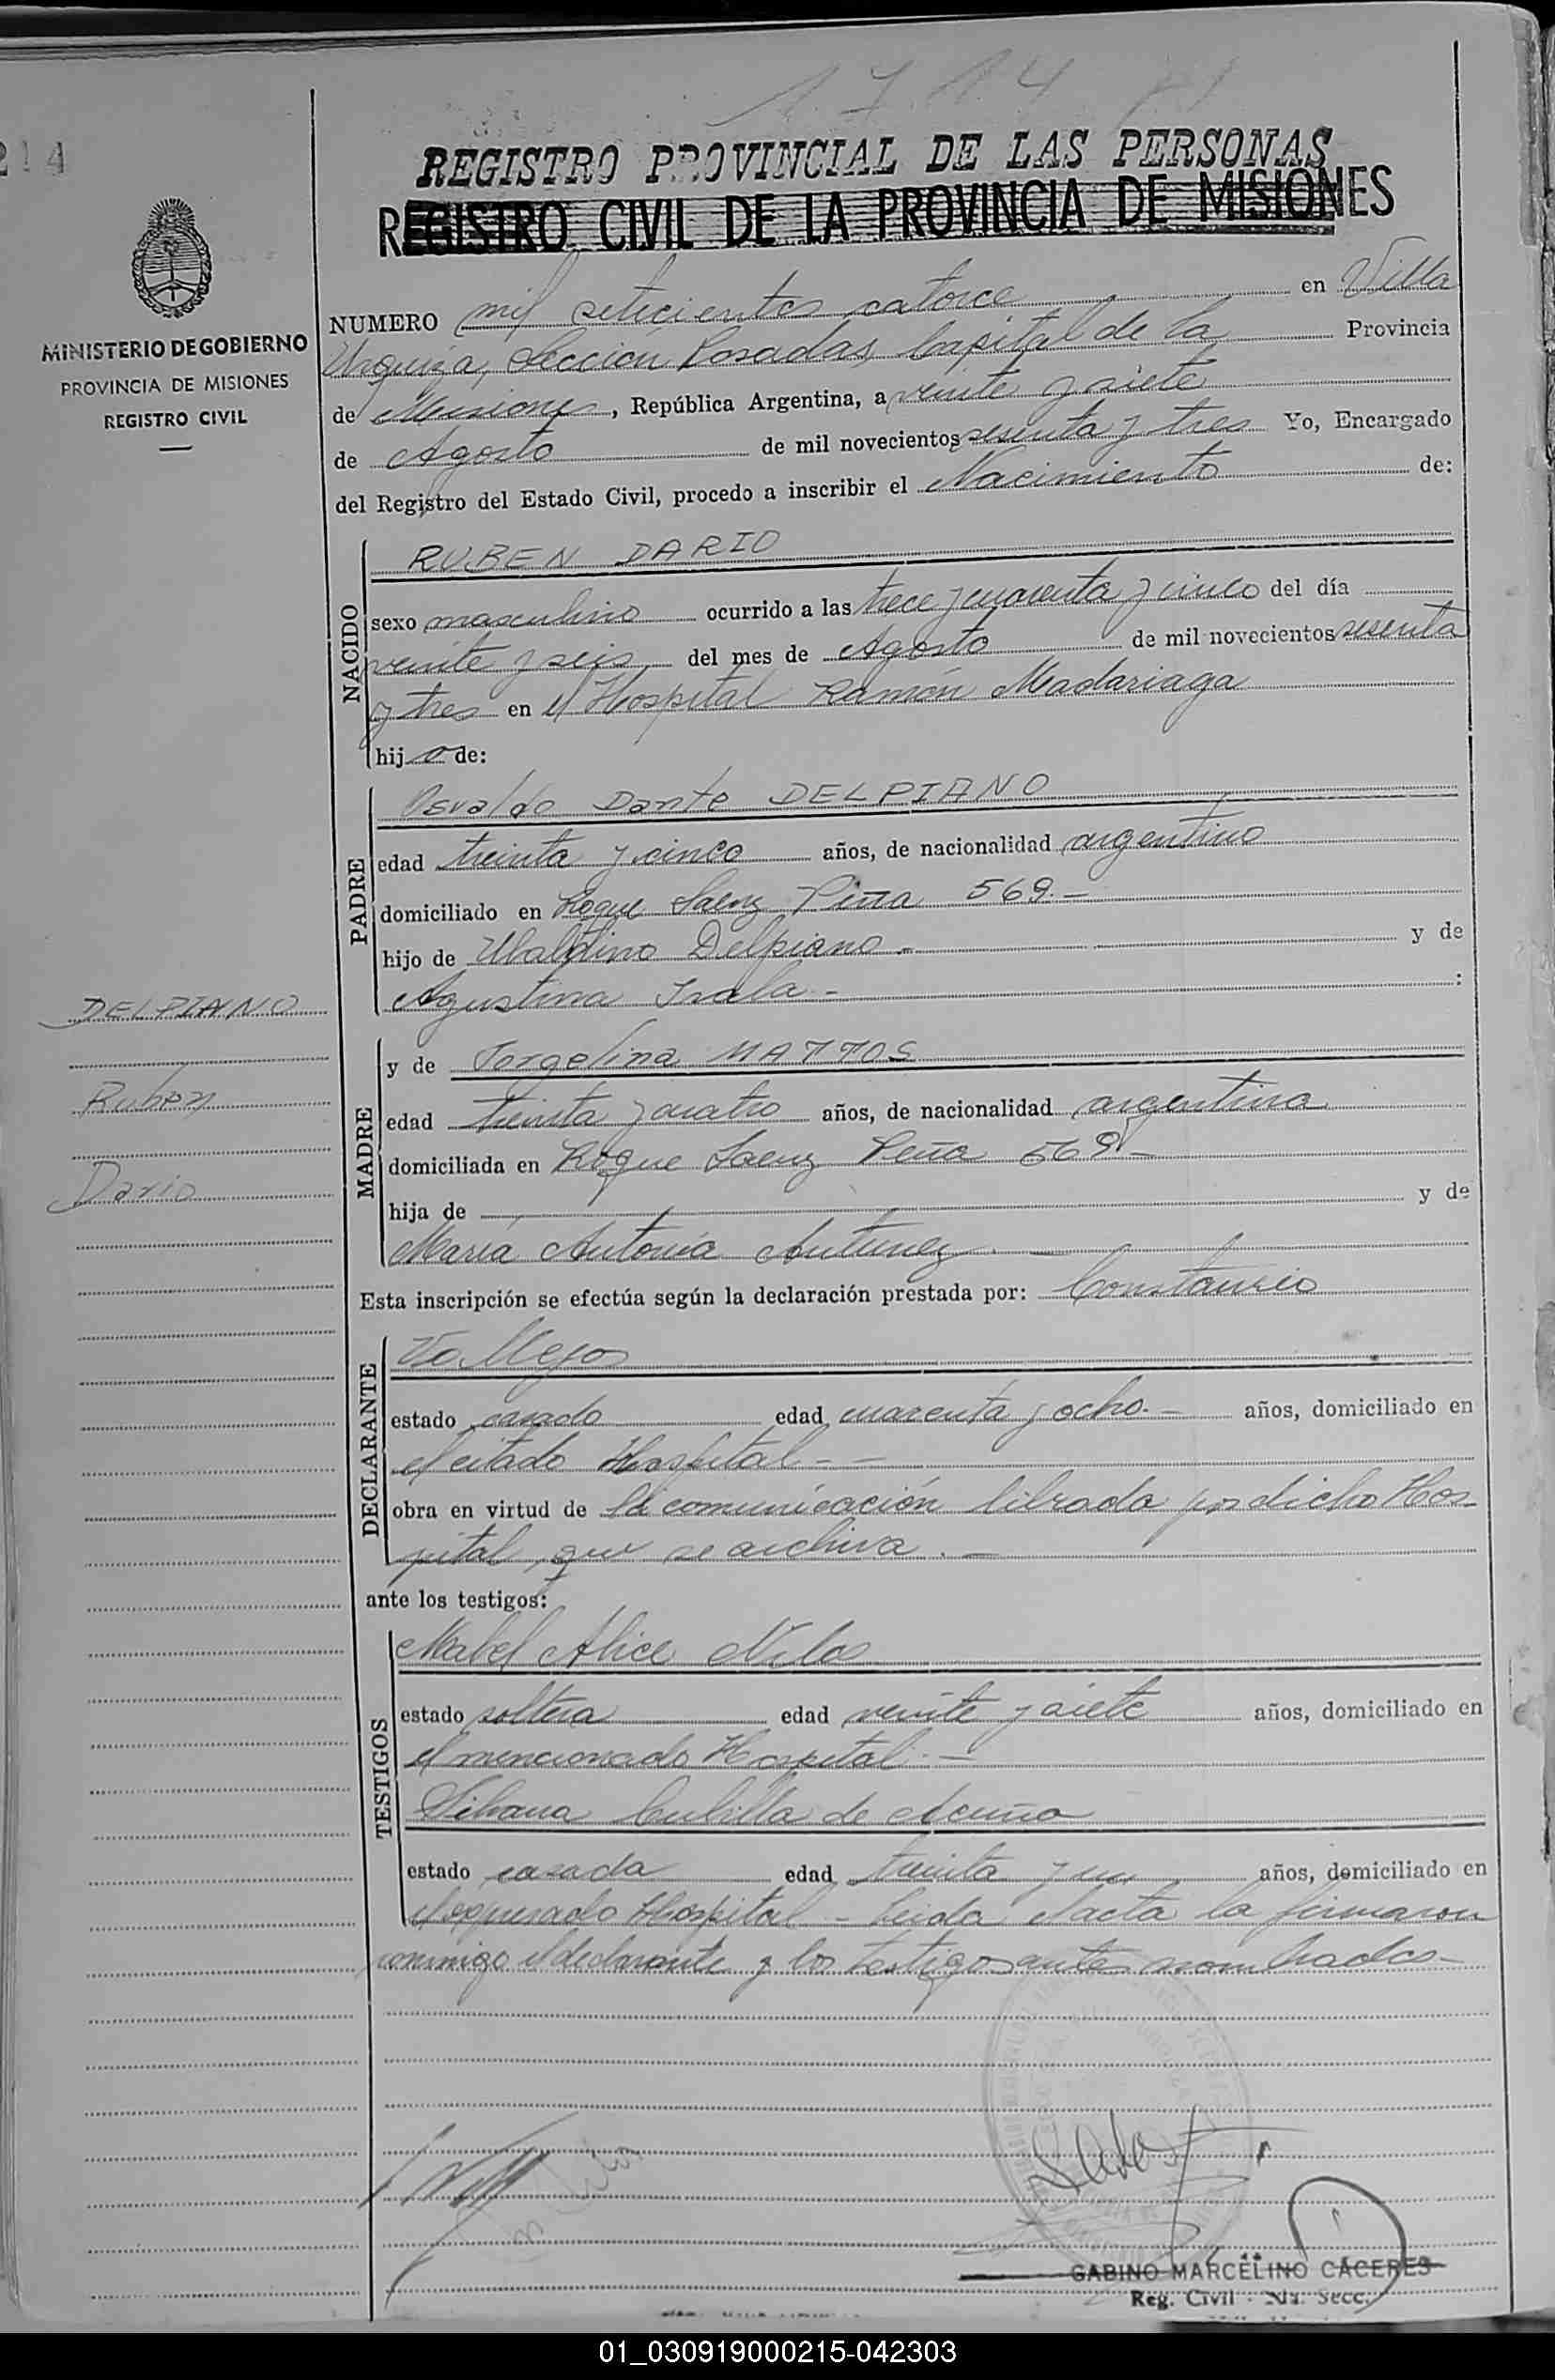 1714
214
REGISTRO PROVINCIAL DE LAS PERSONAS
REGISTRO CIVIL DE LA PROVINCIA DE MISIONES
MINISTERIO DE GOBIERNO
PROVINCIA DE MISIONES
REGISTRO CIVIL
NUMERO mil setecientos catorce en Villa
Urquiza, Sección Posadas, Capital de la Provincia
de Misiones, República Argentina, a veinte y siete
de Agosto de mil novecientos sesenta y tres Yo, Encargado
del Registro del Estado Civil, procedo a inscribir el Nacimiento de:
NACIDO
RUBEN DARIO
sexo masculino ocurrido a las trece y cuarenta y cinco del día
veinte y seis del mes de Agosto de mil novecientos sesenta
y tres en el Hospital Ramón Madariaga
hijo de:
PADRE
Osvaldo Dante DELPIANO
edad treinta y cinco años, de nacionalidad argentino
domiciliado en Roque Saenz Peña 569.-
hijo de Ubaldino Delpiano.- y de
Agustina Irala.- :
DELPIANO
Ruben
Dario
MADRE
y de Jorgelina MATTOS
edad treinta y cuatro años, de nacionalidad argentina
domiciliada en Roque Saenz Peña 569.-
hija de y de
María Antonia Antunez.-
Esta inscripción se efectúa según la declaración prestada por: Constancio
DECLARANTE
Vallejos
estado casado edad cuarenta y ocho.- años, domiciliado en
el citado Hospital.-
obra en virtud de la comunicación librada por dicho Hos-
pital, que se archiva.-
ante los testigos:
TESTIGOS
Mabel Alice
estado soltera edad veinte y siete años, domiciliado en
el mencionado Hospital.-
Silvana Cubilla de Acuña
estado casada edad treinta y un años, domiciliado en
el expresado Hospital - Leida el acta la firmaron
conmigo el declarante y los testigos antes nombrados-
GABINO MARCELINO CACERES
Reg. Civil Secc.
01_030919000215-042303